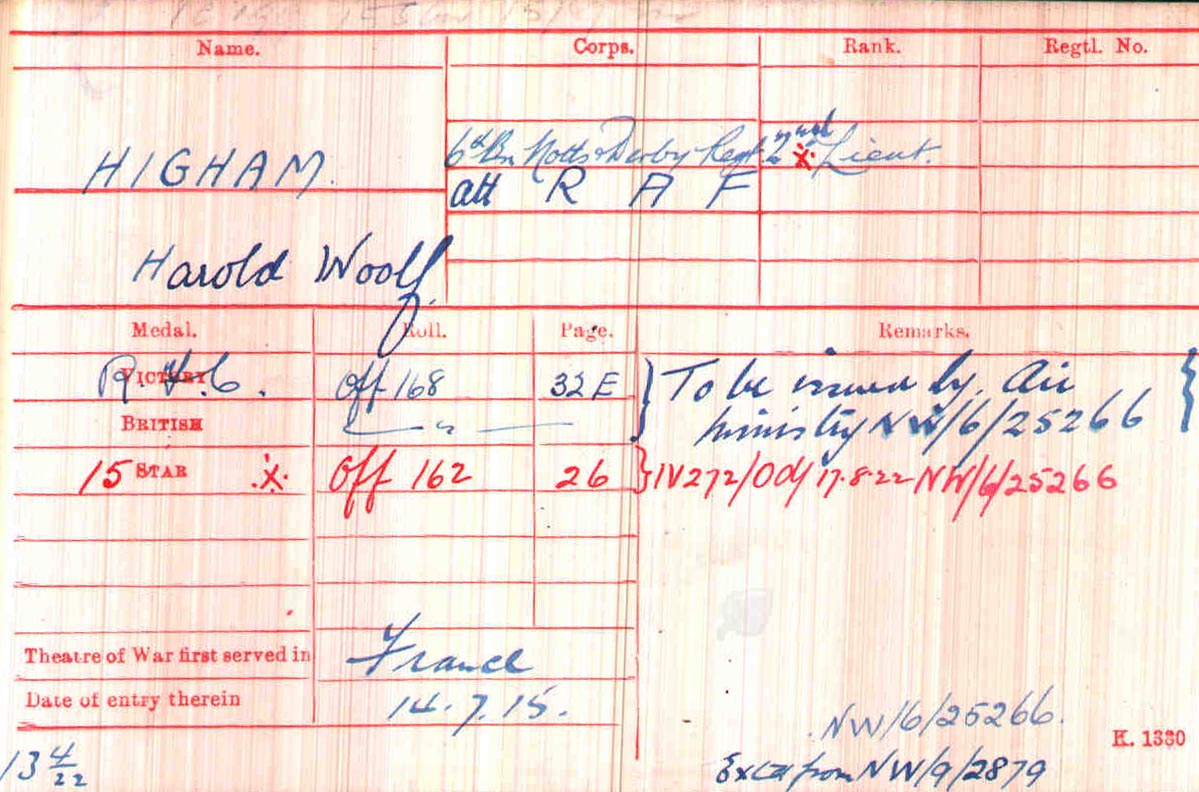 Name. Corps. Rank. Regtl. No.
HIGHAM. 6th Bn Notts & Derby Regt 2nd x Lieut.
att R A F
Harold Woolf.
Medal. Roll. Page. Remarks.
VICTORY Off 168 32E } To be issued by Air }
BRITISH — " — ministry NW/6/25266
15 STAR x Off 162 26 } IV272/Od/ 17.8.22 NW/6/25266
Theatre of War first served in France
Date of entry therein 14.7.15.
NW/6/25266.
K. 1380
13 4/22 from NW/9/2879